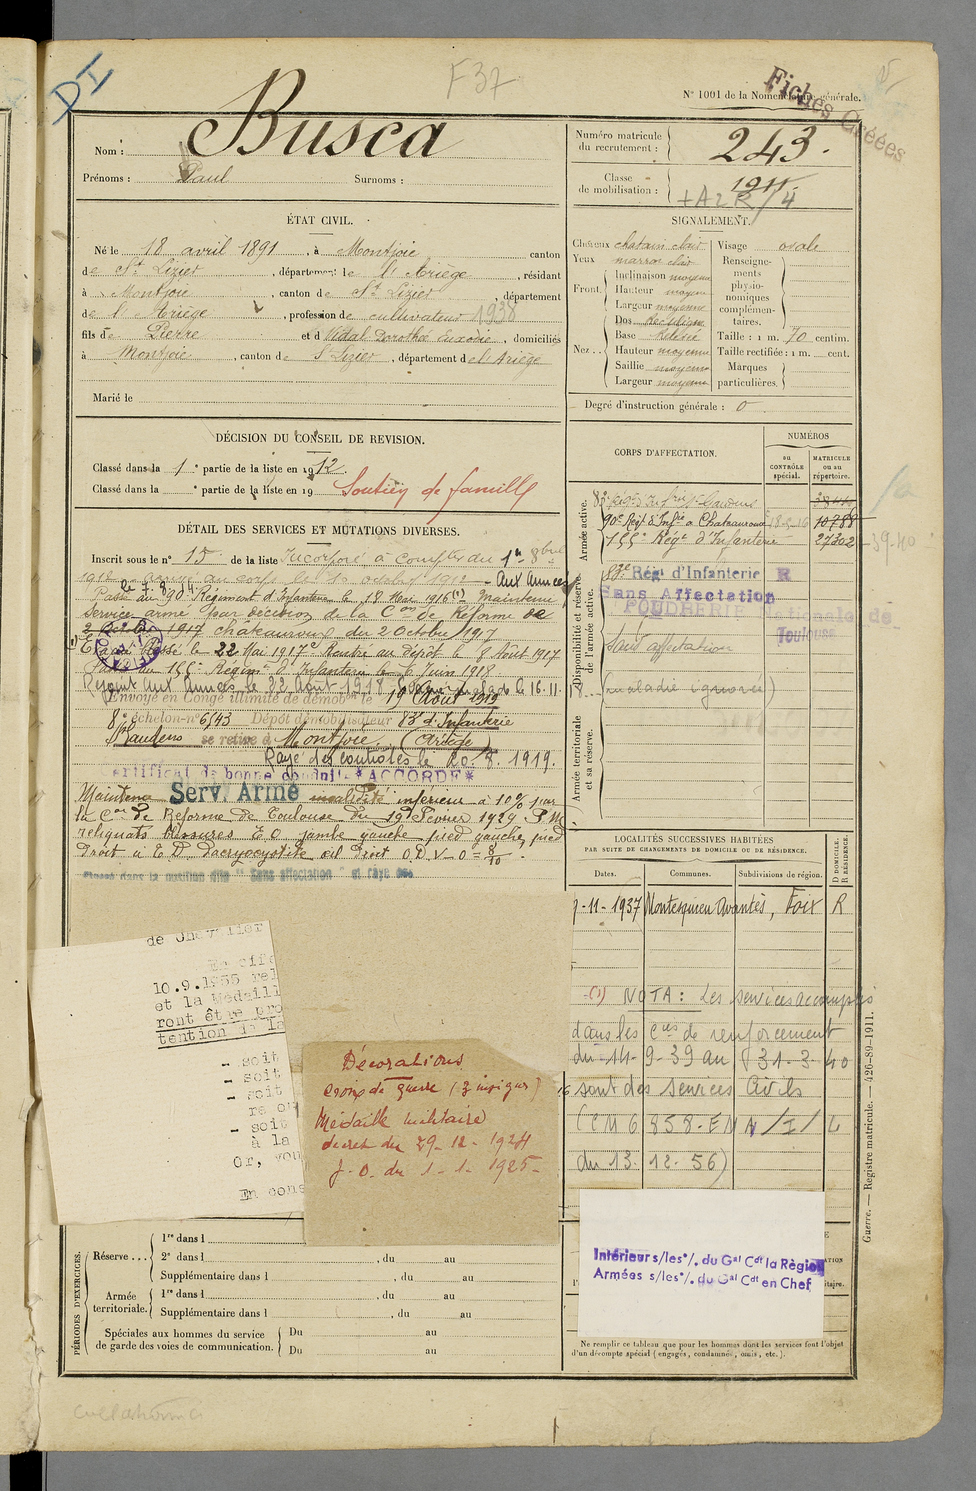 DI
F37
Fiches Créées
N° 1001 de la Nomenclature générale.
Nom : Busca
Prénoms : Paul Surnoms :
Numéro matricule du recrutement : 243.
Classe de mobilisation : 1911.
ÉTAT CIVIL.
Né le 18 avril 1891, à Montjoie canton
de St Lizier, département de l'Ariège, résidant
à Montjoie, canton de St Lizier, département
de l'Ariège, profession de cultivateur 1938
fils de Pierre et de Vidal Dorothée Euxoxie, domiciliés
à Montjoie, canton de St Lizier, département de l'Ariège
Marié le
SIGNALEMENT.
Cheveux chatain clair
Yeux marron clair
Front. Inclinaison moyenne
Hauteur moyenne
Largeur moyenne
Nez Dos Rectiligne
Base Relevée
Hauteur moyenne
Saillie moyenne
Largeur moyenne
Visage ovale
Renseignements physionomiques complémentaires.
Taille : 1 m. 70 centim.
Taille rectifiée : 1 m. cent.
Marques particulières.
Degré d'instruction générale : 0
DÉCISION DU CONSEIL DE REVISION.
Classé dans la 1e partie de la liste en 1912.
Classé dans la e partie de la liste en 19 Soutien de famille
DÉTAIL DES SERVICES ET MUTATIONS DIVERSES.
Inscrit sous le n° 15 de la liste Incorporé à compter du 1er 8bre
1912 arrivé au corps le 10 octobre 1912 - Aux Armées
le 7.8.14.
Passé au 90e Régiment d'Infanterie le 18 Mai 1916 (1) Maintenu
service armé par décision de la Con de Réforme de
2 Octobre 1917 châteauroux du 2 Octobre 1917
Evacué blessé le 22 Mai 1917 Rentré au Dépôt le 8 Août 1917
Passé au 155e Régimt d'Infanterie le 6 Juin 1918
Rejoint Aux Armées le 23 Août 1918 Evacué malade le 16.11.18 (maladie ignorée)
Envoyé en Congé illimité de démobon le 19 Août 1919
8e échelon n° 6543 Dépôt démobilisateur 83e d'Infanterie
St Gaudens se retire à Montjoie (Ariège)
Rayé des contrôles le 20.8.1919.
Certificat de bonne conduite *ACCORDÉ*
Maintenu Serv. Armé invalidité inférieure à 10% par
la Con de Réforme de Toulouse du 19 Février 1929 P.M.
reliquats blessures E.O. jambe gauche, pied gauche, pied
droit et E.D. Dacryocystite œil droit O.D.V-0 = 8/10.
Classé dans la position dite "Sans affectation"
CORPS D'AFFECTATION.
NUMÉROS
au CONTRÔLE spécial.
MATRICULE ou au répertoire.
Armée active.
83e Régt Infrie St Gaudens
90e Régt d'Infie à Chateauroux 18-5-16 10788
155e Régt d'Infanterie 27302
Disponibilité et réserve de l'armée active.
83e Régt d'Infanterie R
Sans Affectation
POUDRERIE Nationale de Toulouse
Sans affectation
Armée territoriale et sa réserve.
LOCALITÉS SUCCESSIVES HABITÉES
PAR SUITE DE CHANGEMENTS DE DOMICILE OU DE RÉSIDENCE.
Dates. Communes. Subdivisions de région. D DOMICILE. R RÉSIDENCE.
7-11-1937 Montesquieu Avantès, Foix R
(1) NOTA : Les services accomplis
dans les cies de renforcement
du 14-9-39 au 31-3-40
sont des services civils
(CM 6 858-EMA/I/L
du 13.12.56)
de Chevalier
En effe
10.9.1955 rel
et la Médaill
ront être pro
tention de la
- soit
- soit
- soit
- soit
à la
Or, vou
En cons
Décorations
croix de guerre
Médaille militaire
décret du 29-12-1924
J.O. du 1-1-1925-
PÉRIODES D'EXERCICES.
Réserve ... 1re dans l
2e dans l , du au
Supplémentaire dans l , du au
Armée territoriale. 1re dans l , du au
Supplémentaire dans l , du au
Spéciales aux hommes du service de garde des voies de communication. Du au
Du au
Intérieur s/les°/. du Gal Cdt la Région
Armées s/les°/. du Gal Cdt en Chef
Ne remplir ce tableau que pour les hommes dont les services font l'objet
d'un décompte spécial (engagés, condamnés, omis, etc.).
Guerre. — Registre matricule. — 426-89-1911.